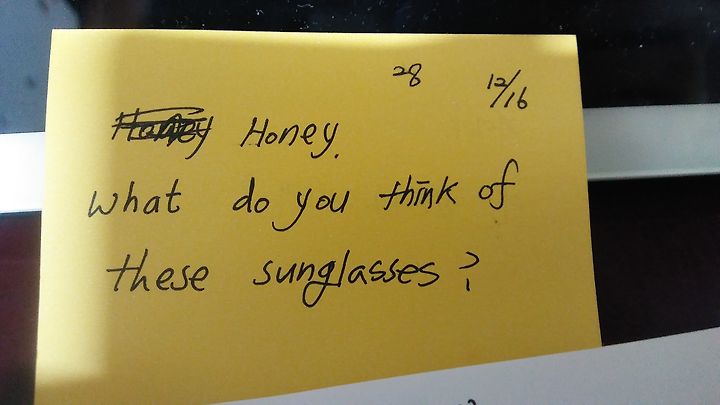 28 12/16
Honey.
What do you think of
these sunglasses?